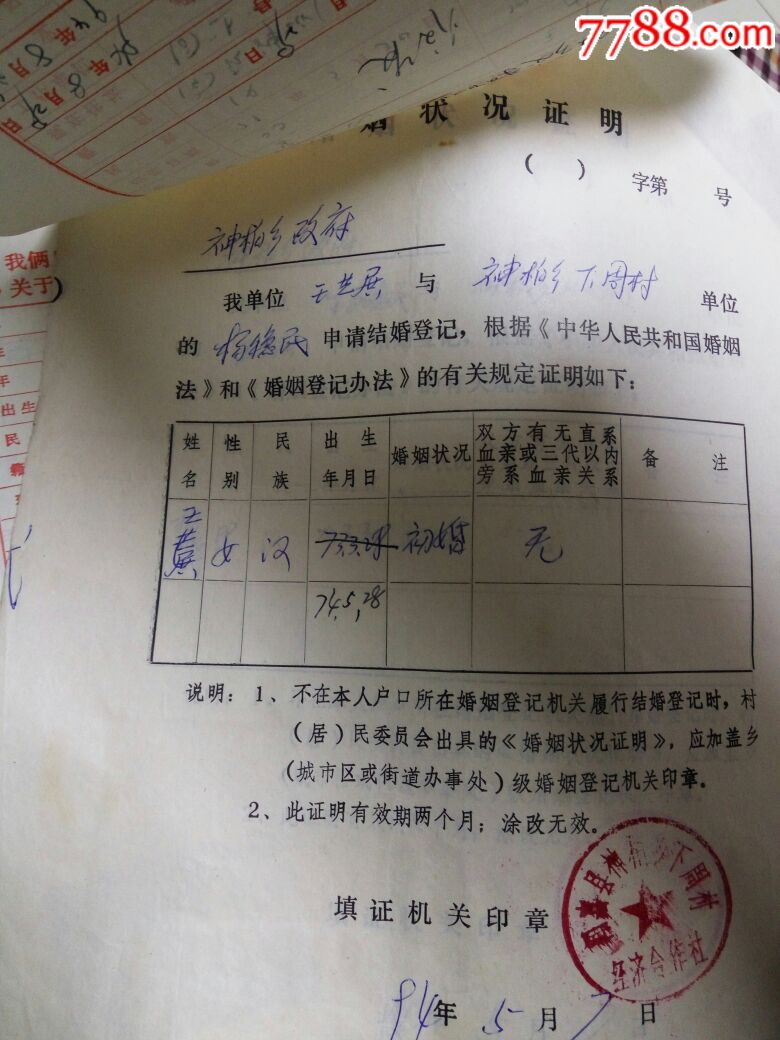 7788.com
94年8月
94年8月28日
日
姻状况证明
( ) 字第 号
神柏乡政府
我俩
关于
我单位 王芸展 与 神柏乡下周村 单位
的 杨稳民 申请结婚登记，根据《中华人民共和国婚姻
法》和《婚姻登记办法》的有关规定证明如下：
年
出生
民
姓名 性别 民族 出生年月日 婚姻状况 双方有无直系血亲或三代以内旁系血亲关系 备注
女 汉 初婚 无
74.5.28
说明：1、不在本人户口所在婚姻登记机关履行结婚登记时，村
(居)民委员会出具的《婚姻状况证明》，应加盖乡
(城市区或街道办事处)级婚姻登记机关印章。
2、此证明有效期两个月；涂改无效。
填证机关印章
县神柏乡下周村
经济合作社
94年5月7日